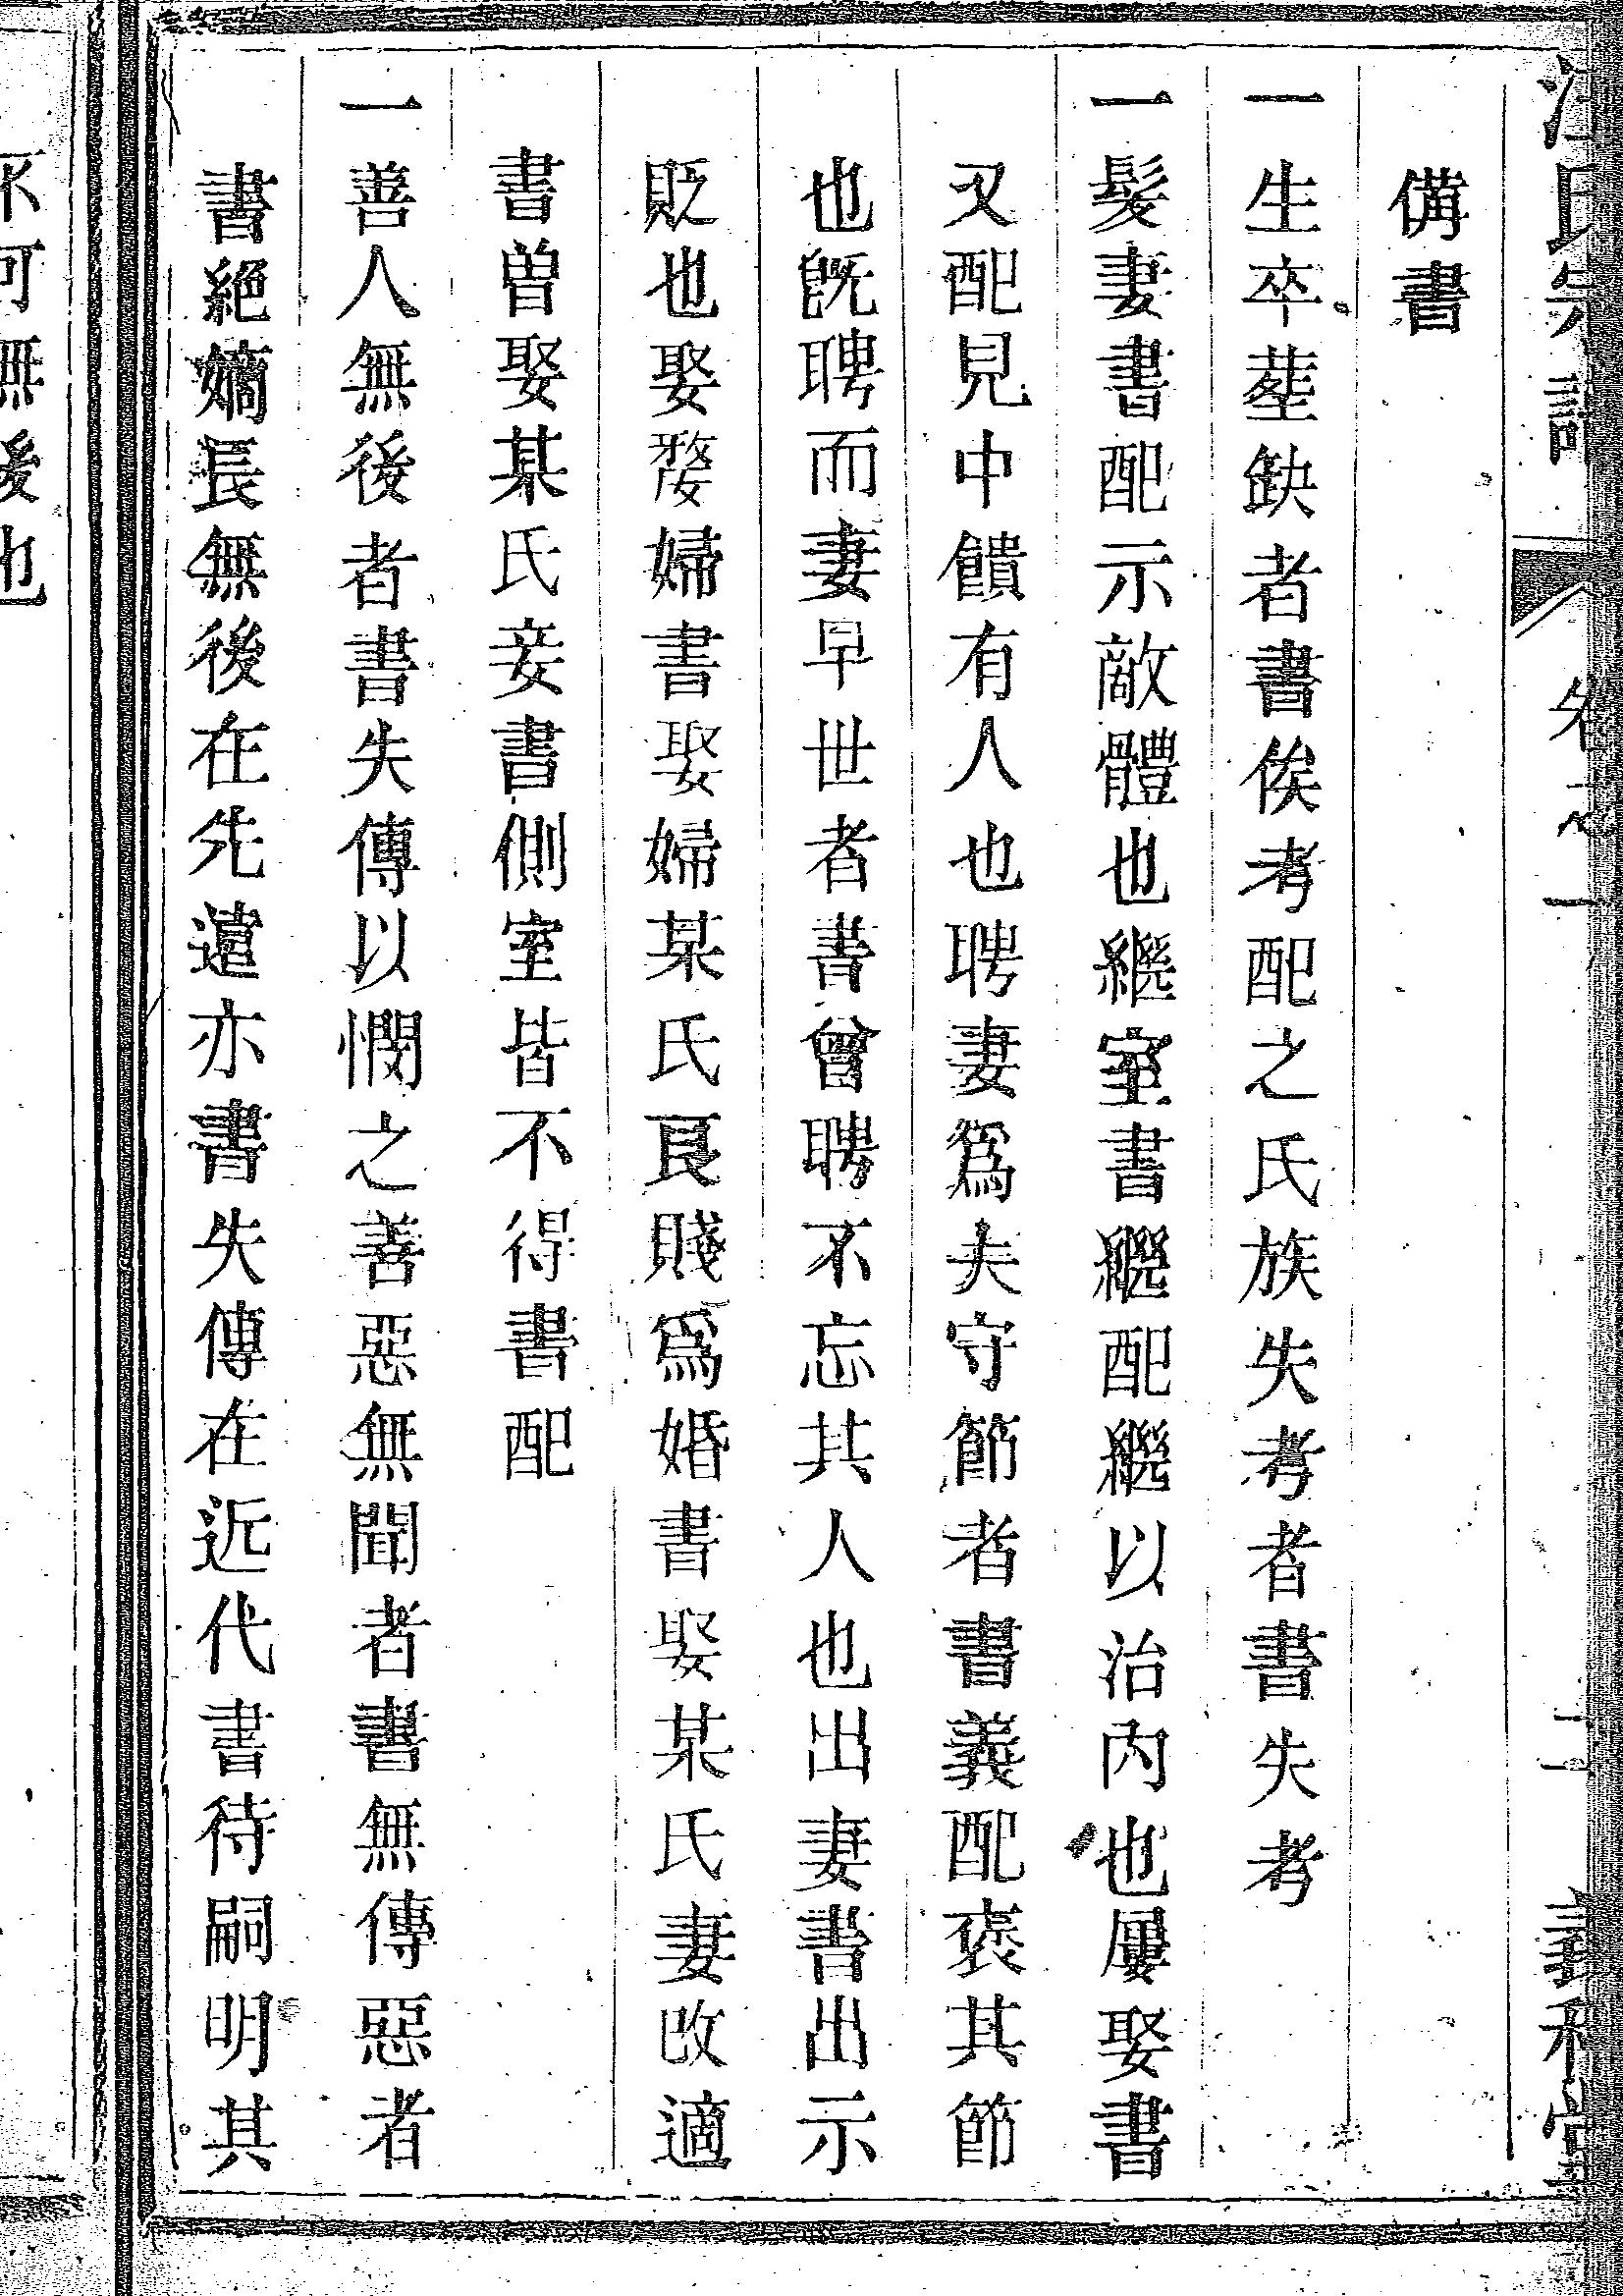 備書
一生卒塟缺者書俟考配之氏族失考者書失考
一髮妻書配示敵體也繼室書繼配繼以治內也屢娶書
又配見中饋有人也聘妻爲夫守節者書義配褒其節
也旣聘而妻早世者書曾聘不忘其人也出妻書出示
貶也娶婺婦書娶婦某氏良賤爲婚書娶某氏妻改適
書曾娶某氏妾書側室皆不得書配
一善人無後者書失傳以憫之善惡無聞者書無傳惡者
書絕嫡長無後在先遠亦書失傳在近代書待嗣明其
不可無後也